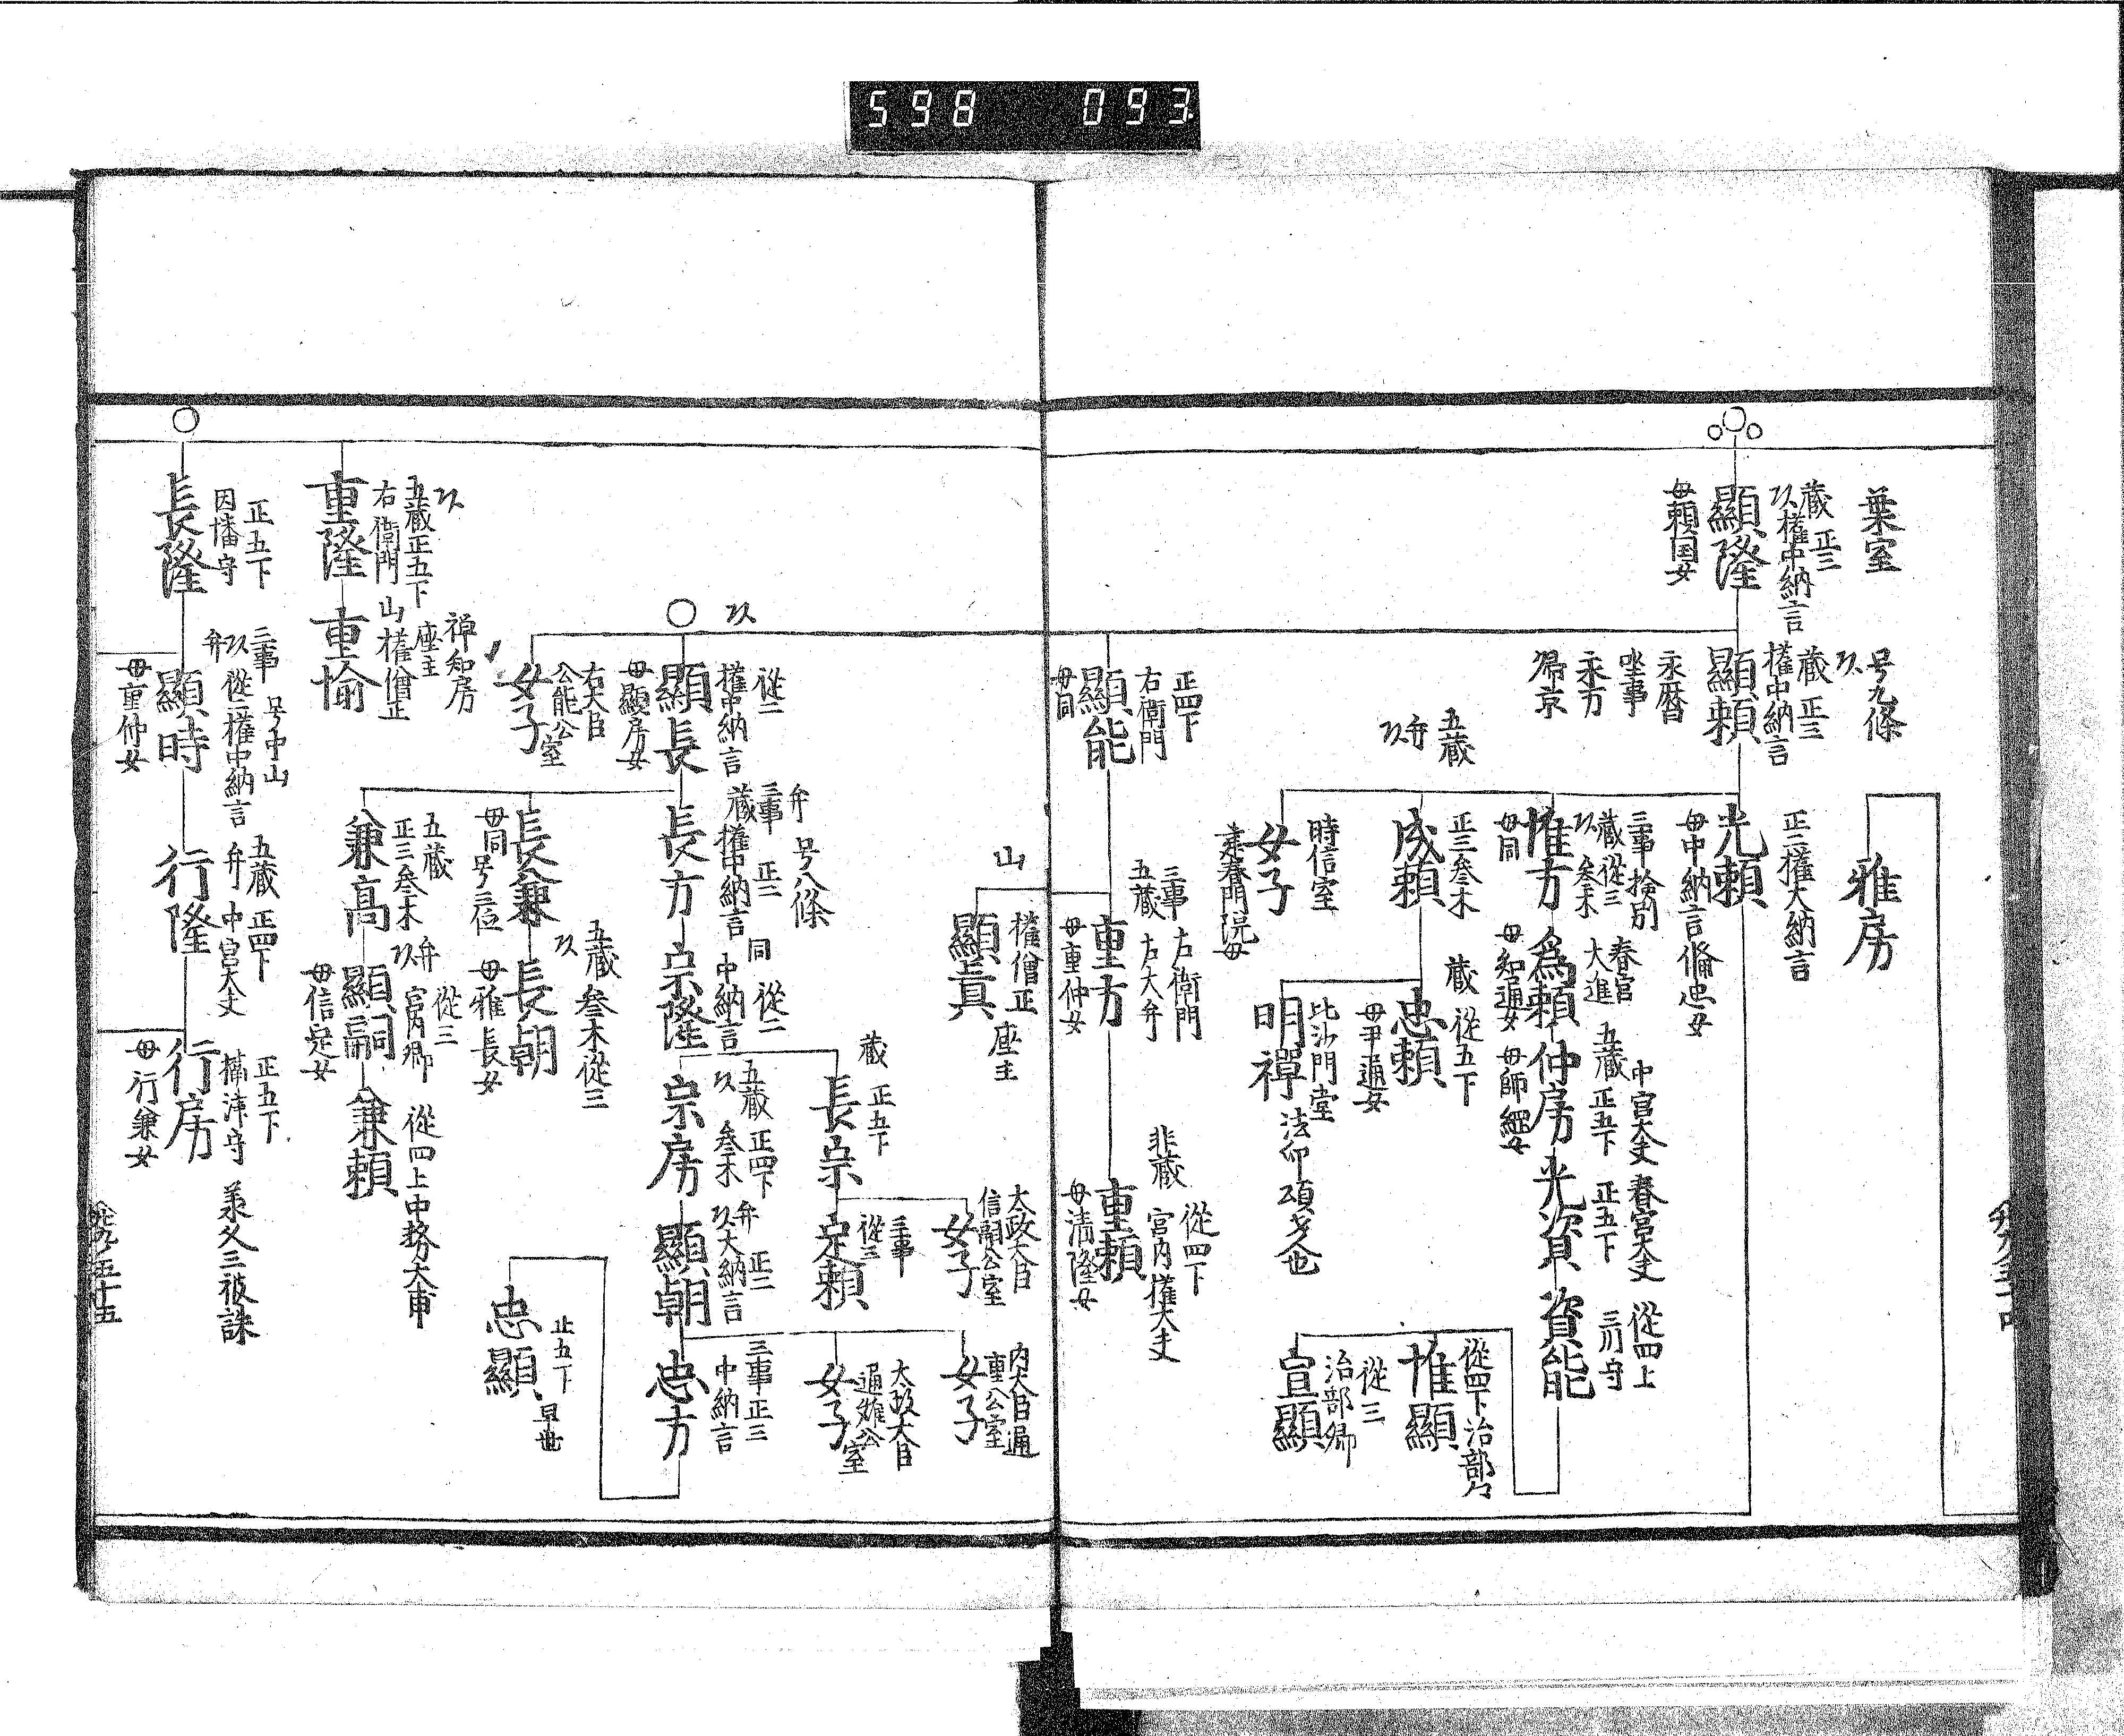 598 093
葉室
蔵 正三
権中納言
顯隆
母頼国女
号九條
蔵 正三
権中納言
顯頼
永暦
坐事
永万
帰京
雅房
正二権大納言
光頼
母中納言俊忠女
三事 検別
蔵 從三
参木
惟方
母同
春宮
大進
為頼
母知通女
五蔵 正五下
中宮大夫
仲房
母師経女
春宮大夫
正五下
光資
從四上
三川守
資能
從四下治部少
惟顯
從三
治部卿
宣顯
五蔵
弁
正三参木
成頼
蔵 從五下
忠頼
母尹通女
毘沙門堂
明禅 法印
時信室
女子
建春門院母
正四下
右衛門
顯能
母同
三事 左衛門
五蔵 右大弁
重方
母重仲女
非蔵
從四下
宮内権大夫
重頼
母清隆女
山
権僧正
顯真
座主
從二
権中納言
顯長
母顯房女
右大臣
公能公室
女子
弁 号八條
三事 正二
蔵 権中納言
長方
同 從二
中納言
宗隆
蔵 正五下
長宗
太政大臣
信嗣公室
女子
三事
從三
定頼
五蔵 正四下
参木
宗房
弁 正二
大納言
顯朝
内大臣通
重公室
女子
太政大臣
通雄公室
女子
三事 正三
中納言
忠方
正五下
忠顯
早世
長兼
母同 号三位
五蔵 参木從三
長朝
母雅長女
五蔵
正三参木
兼高
弁 從三
宮内卿
顯嗣
母信定女
從四上中務大甫
兼頼
五蔵正五下
右衛門
重隆
禅知房
座主
山権僧正
重愉
正五下
因幡守
長隆
三事 号中山
從二権中納言
弁
顯時
母重仲女
五蔵 正四下
弁 中宮大夫
行隆
正五下
摂津守
行房
母行兼女
承久三被誅